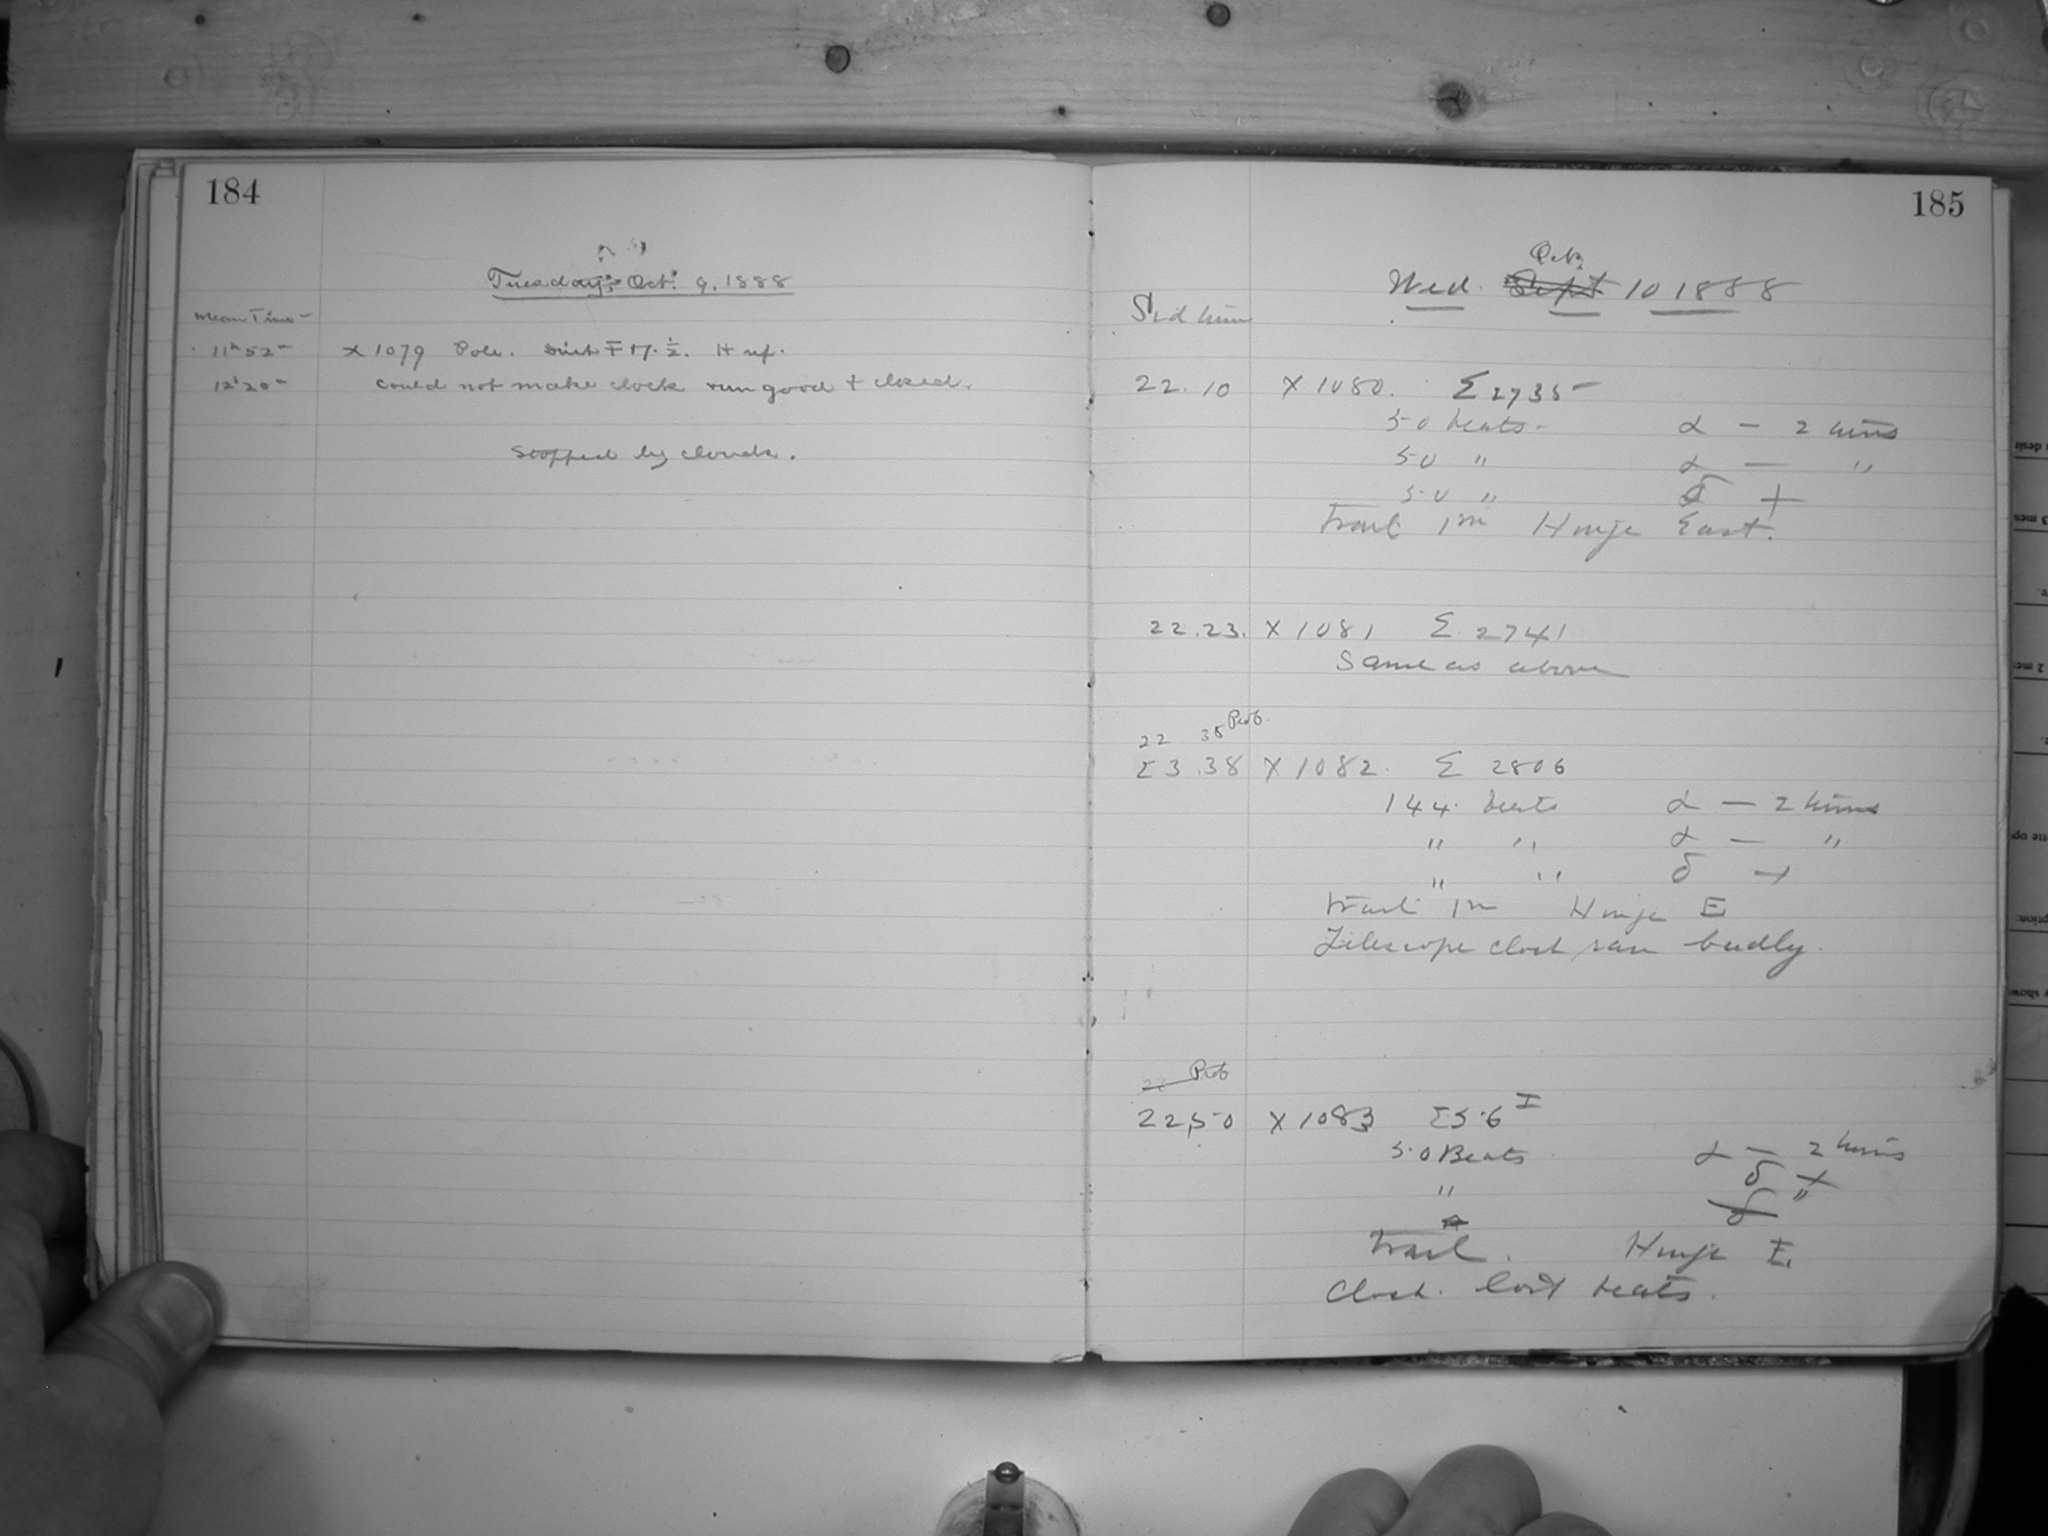 184
Tuesday, Oct. 9, 1888
Mean Time
11h 52m X 1079 Pole. 17. 1/2. H
12h 20m Could not make clock run good + closed.
Stopped by clouds.
185
Oct.
Wed. Sept 10 1888
Sid time
22.10 X 1080. Σ 2735
50 beats α — 2 mins
50 " α — "
50 " δ +
Trail 1m Hinge East.
22.23. X 1081 Σ 2741
Same as above
22 38 Prob.
23.38 X 1082. Σ 2806
144 beats α — 2 mins
" " α — "
" " δ +
Trail 1m Hinge E
Telescope clock ran badly.
22 Prob
22,50 X 1083 Σ 5.6 I
50 Beats α — 2 mins
" δ + "
Trail. Hinge E.
Clock. lost beats.